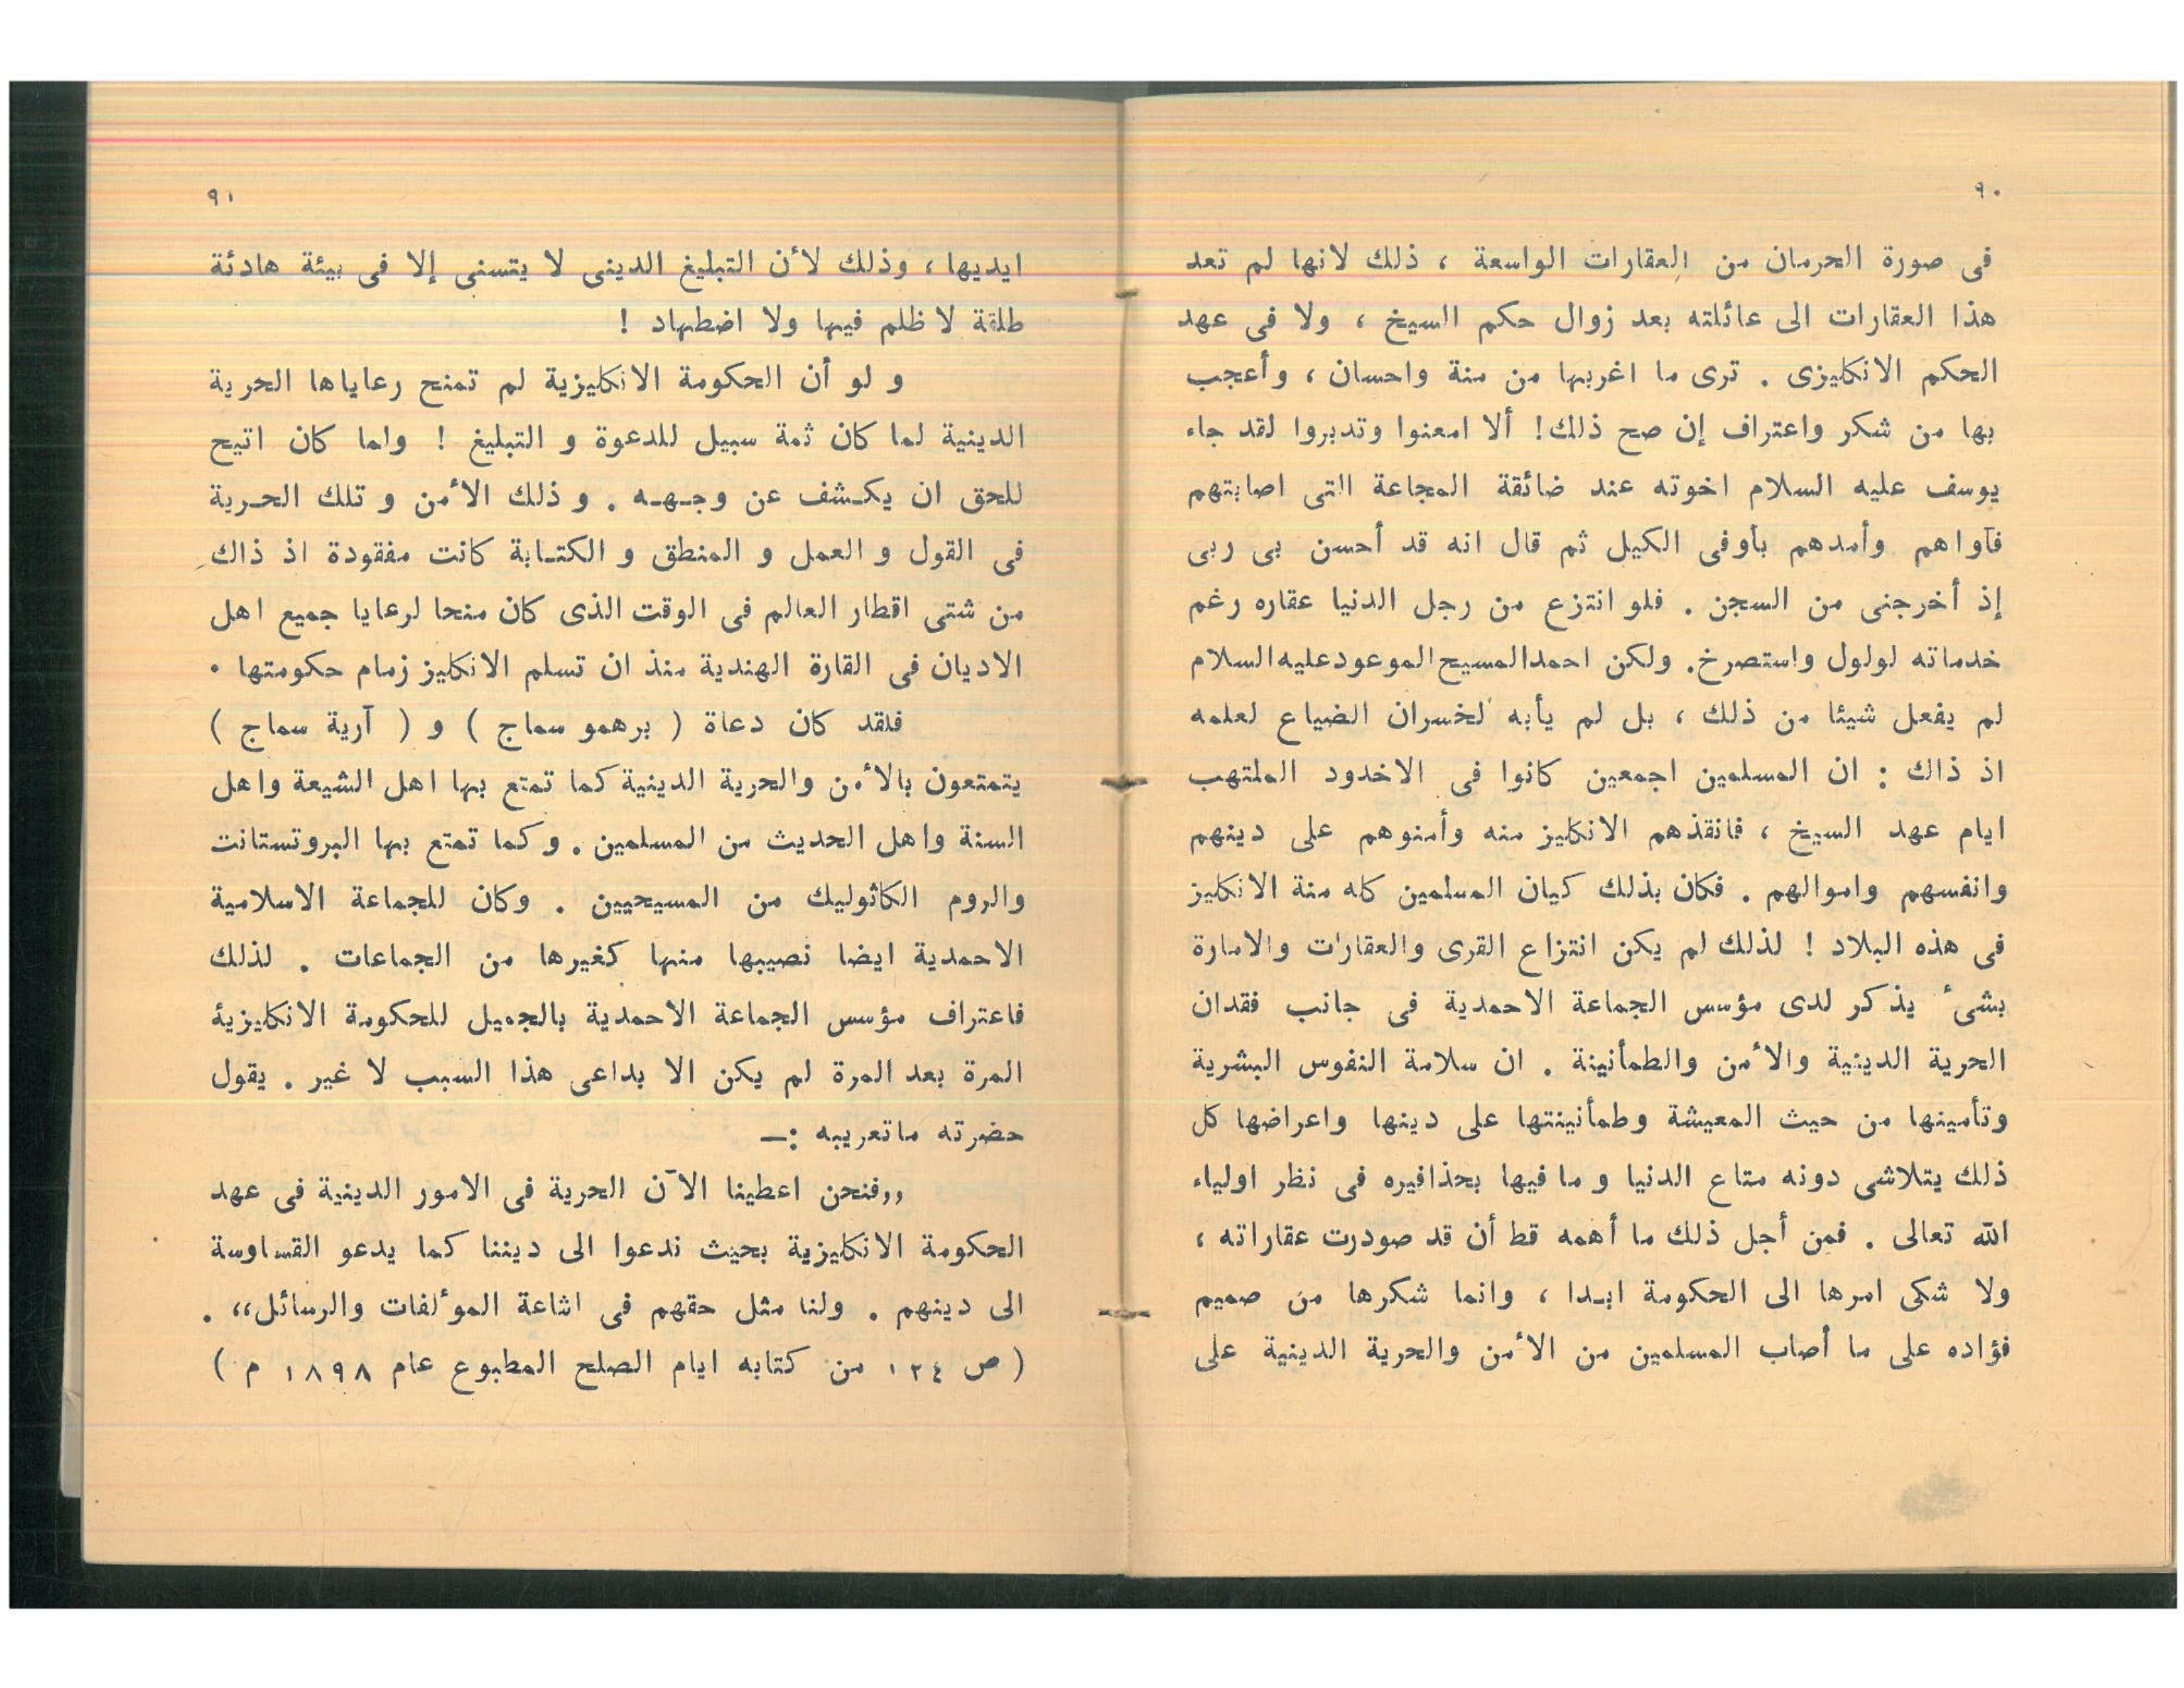 ٩٠
فى صورة الحرمان من العقارات الواسعة ، ذلك لانها لم تعد
هذا العقارات الى عائلته بعد زوال حكم السيخ ، ولا فى عهد
الحكم الانكليزى . ترى ما اغربها من منة واحسان ، وأعجب
بها من شكر واعتراف إن صح ذلك! ألا امعنوا وتدبروا لقد جاء
يوسف عليه السلام اخوته عند ضائقة المجاعة التى اصابتهم
فآواهم وأمدهم بأوفى الكيل ثم قال انه قد أحسن بى ربى
إذ أخرجنى من السجن . فلو انتزع من رجل الدنيا عقاره رغم
خدماته لولول واستصرخ. ولكن احمدالمسيح الموعود عليه السلام
لم يفعل شيئا من ذلك ، بل لم يأبه لخسران الضياع لعلمه
اذ ذاك : ان المسلمين اجمعين كانوا فى الاخدود الملتهب
ايام عهد السيخ ، فانقذهم الانكليز منه وأمنوهم على دينهم
وانفسهم واموالهم . فكان بذلك كيان المسلمين كله منة الانكليز
فى هذه البلاد ! لذلك لم يكن انتزاع القرى والعقارات والامارة
بشىء يذكر لدى مؤسس الجماعة الاحمدية فى جانب فقدان
الحرية الدينية والأمن والطمأنينة . ان سلامة النفوس البشرية
وتأمينها من حيث المعيشة وطمأنينتها على دينها واعراضها كل
ذلك يتلاشى دونه متاع الدنيا و ما فيها بحذافيره فى نظر اولياء
الله تعالى . فمن أجل ذلك ما أهمه قط أن قد صودرت عقاراته ،
ولا شكى امرها الى الحكومة ابدا ، وانما شكرها من صميم
فؤاده على ما أصاب المسلمين من الأمن والحرية الدينية على
٩١
ايديها ، وذلك لأن التبليغ الدينى لا يتسنى إلا فى بيئة هادئة
طلقة لا ظلم فيها ولا اضطهاد !
و لو أن الحكومة الانكليزية لم تمنح رعاياها الحرية
الدينية لما كان ثمة سبيل للدعوة و التبليغ ! ولما كان اتيح
للحق ان يكشف عن وجهه . و ذلك الأمن و تلك الحرية
فى القول و العمل و المنطق و الكتابة كانت مفقودة اذ ذاك
من شتى اقطار العالم فى الوقت الذى كان منحا لرعايا جميع اهل
الاديان فى القارة الهندية منذ ان تسلم الانكليز زمام حكومتها .
فلقد كان دعاة ( برهمو سماج ) و ( آرية سماج )
يتمتعون بالأمن والحرية الدينية كما تمتع بها اهل الشيعة واهل
السنة واهل الحديث من المسلمين . وكما تمتع بها البروتستانت
والروم الكاثوليك من المسيحيين . وكان للجماعة الاسلامية
الاحمدية ايضا نصيبها منها كغيرها من الجماعات . لذلك
فاعتراف مؤسس الجماعة الاحمدية بالجميل للحكومة الانكليزية
المرة بعد المرة لم يكن الا بداعى هذا السبب لا غير . يقول
حضرته ماتعريبه :—
,,فنحن اعطينا الآن الحرية فى الامور الدينية فى عهد
الحكومة الانكليزية بحيث ندعوا الى ديننا كما يدعو القساوسة
الى دينهم . ولنا مثل حقهم فى اشاعة الموٴلفات والرسائل،، .
( ص ١٢٤ من كتابه ايام الصلح المطبوع عام ١٨٩٨ م )